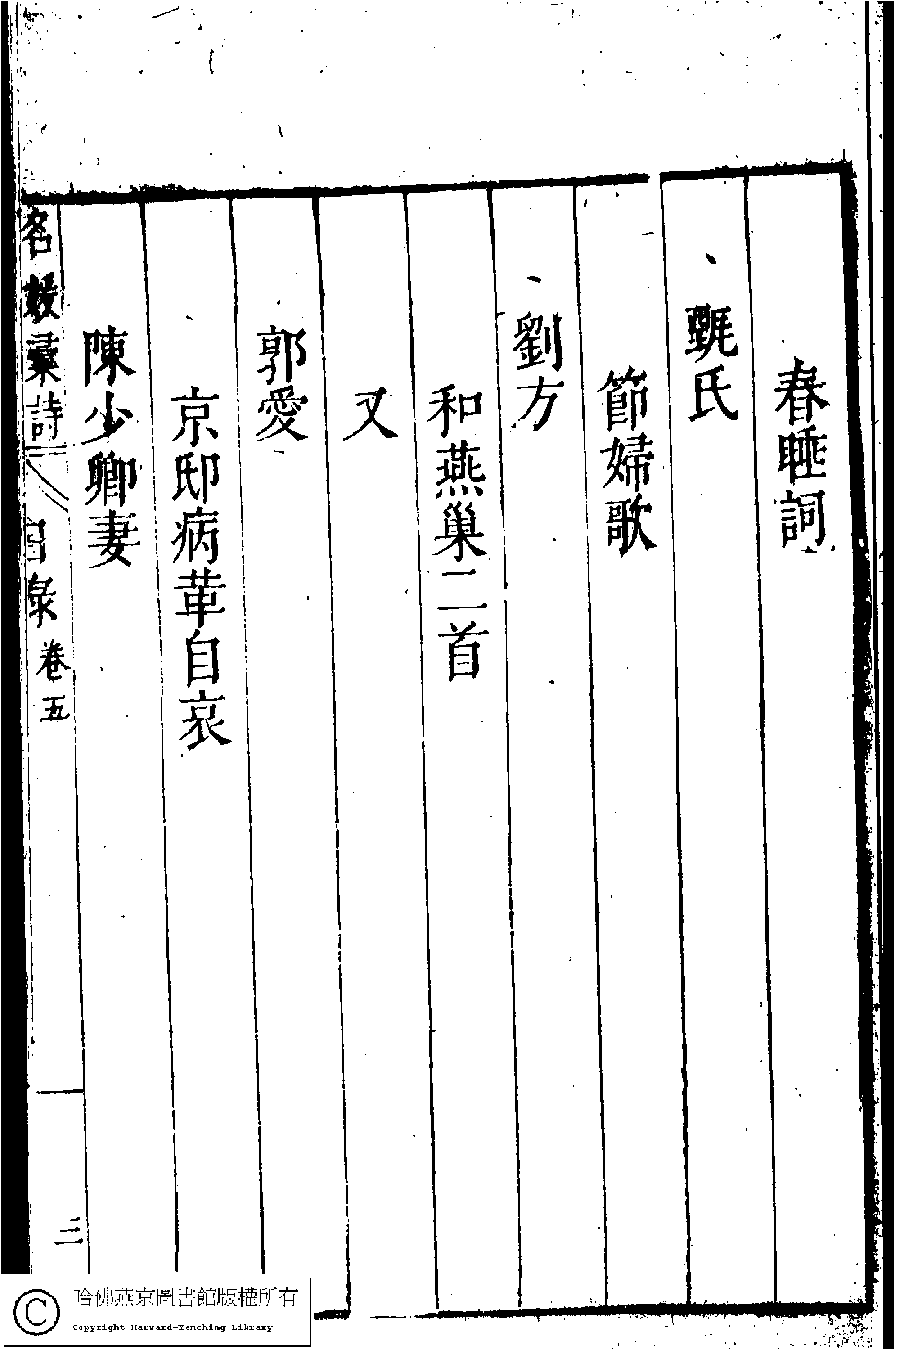 春睡詞
甄氏
節婦歌
劉方
和燕巢二首
又
郭愛
京邸病革自哀
陳少卿妻
名媛彙詩 目彔 卷五 三
哈佛燕京圖書館版權所有
Copyright Harvard-Yenching Library